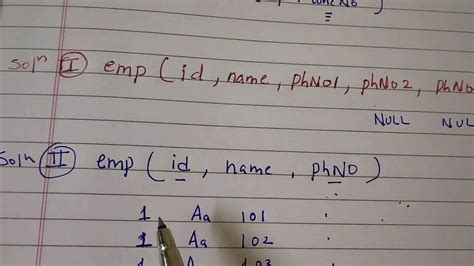 Soln I emp ( id , name , phNO1 , phNO2 , phNO
NULL NULL
Soln II emp ( id , name , phNO )
1 Aa 101
1 Aa 102
1 Aa 103